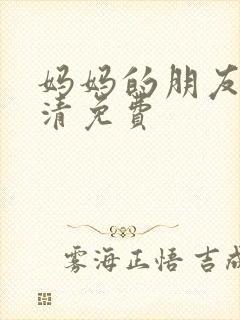 妈妈的朋友
清免费
雾海正悟 吉成